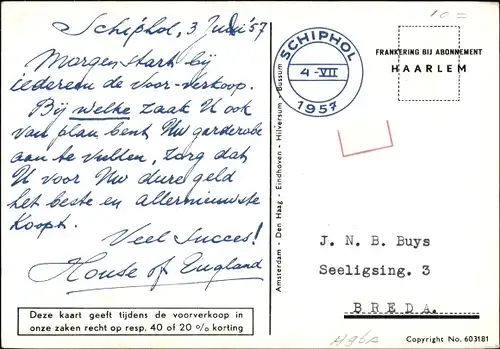 Schiphol, 3 Juli '57
Morgen start bij
iedereen de voor-verkoop.
Bij welke zaak U ook
van plan bent, Uw garderobe
aan te vullen, zorg dat
U voor Uw dure geld
het beste en allernieuwste
koopt.
Veel succes!
House of England
Deze kaart geeft tijdens de voorverkoop in
onze zaken recht op resp. 40 of 20 % korting
Amsterdam - Den Haag - Eindhoven - Hilversum - Bussum
SCHIPHOL
4-VII
1957
10 =
FRANKERING BIJ ABONNEMENT
HAARLEM
J. N. B. Buys
Seeligsing. 3
BREDA.
Copyright No. 603181